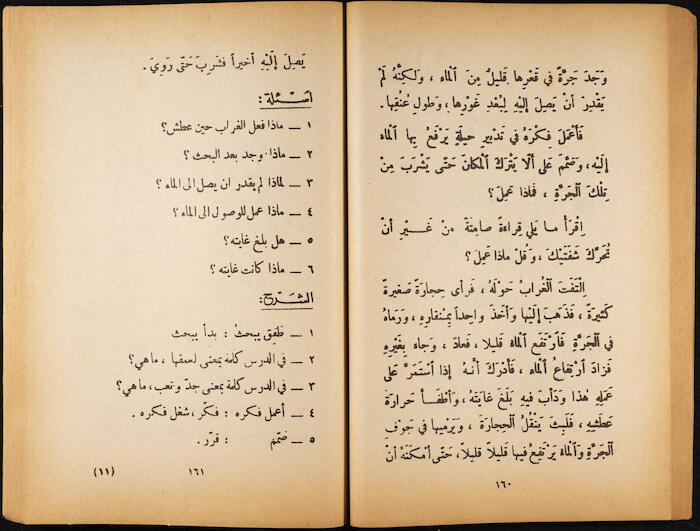 وَجَدَ جَرَّةً في قَعْرِها قَليلٌ مِنَ ٱلْماءِ ، وَلٰكِنَّهُ لَمْ
يَقْدِرْ أَنْ يَصِلَ إِلَيْهِ لِبُعْدِ غَوْرِها ، وَطولِ عُنُقِها .
فَأَعْمَلَ فِكْرَهُ في تَدْبيرِ حيلَةٍ يَرْفَعُ بِها ٱلْماءَ
إِلَيْهِ، وَصَمَّمَ عَلى أَلَّا يَتْرُكَ ٱلْمَكانَ حَتّى يَشْرَبَ مِنْ
تِلْكَ ٱلْجَرَّةِ ، فَماذا عَمِلَ؟
اِقْرَأْ ما يَلي قِراءَةً صامِتَةً مِنْ غَيْرِ أَنْ
تُحَرِّكَ شَفَتَيْكَ ، وَقُلْ ماذا عَمِلَ؟
اِلْتَفَتَ ٱلْغُرابُ حَوْلَهُ ، فَرأى حِجارَةً صَغيرَةً
كَثيرَةً ، فَذَهَبَ إِلَيْها وَأَخَذَ واحِداً بِمِنْقارِهِ ، وَرَماهُ
في ٱلْجَرَّةِ فَٱرْتَفَعَ ٱلْماءُ قَليلا ، فَعادَ ، وَجاءَ بِغَيْرِهِ
فَزادَ ٱرْتِفاعُ ٱلْماءِ ، فَأَدْرَكَ أَنَّهُ إِذا ٱسْتَمَرَّ عَلى
عَمَلِهِ هٰذا وَدَأَبَ فيهِ بَلَغَ غايَتَهُ ، وَأَطْفَأَ حَرارَةَ
عَطَشِهِ ، فَلَبِثَ يَنْقُلُ ٱلْحِجارَةَ ، وَيَرْميها في جَوْفِ
ٱلْجَرَّةِ وَٱلْماءُ يَرْتَفِعُ فيها قَليلاً قَليلاً ، حَتّى أَمْكَنَهُ أَنْ
١٦٠
يَصِلَ إِلَيْهِ أَخيراً فَشَرِبَ حَتّى رَوِيَ .
أسئلة :
١ ــ ماذا فعل الغراب حين عطش؟
٢ ــ ماذا وجد بعد البحث ؟
٣ ــ لماذا لم يقدر ان يصل الى الماء ؟
٤ ــ ماذا عمل للوصول الى الماء؟
٥ ــ هل بلغ غايته؟
٦ ــ ماذا كانت غايته ؟
الشرح :
١ ــ طفق يبحث : بدأ يبحث
٢ ــ في الدرس كلمة بمعنى لعمقها ، ما هي؟
٣ ــ في الدرس كلمة بمعنى جدّ وتعب ، ما هي؟
٤ ــ أعمل فكره : فكّر ، شغل فكره .
٥ ــ صمّم : قرّر .
١٦١ (١١)